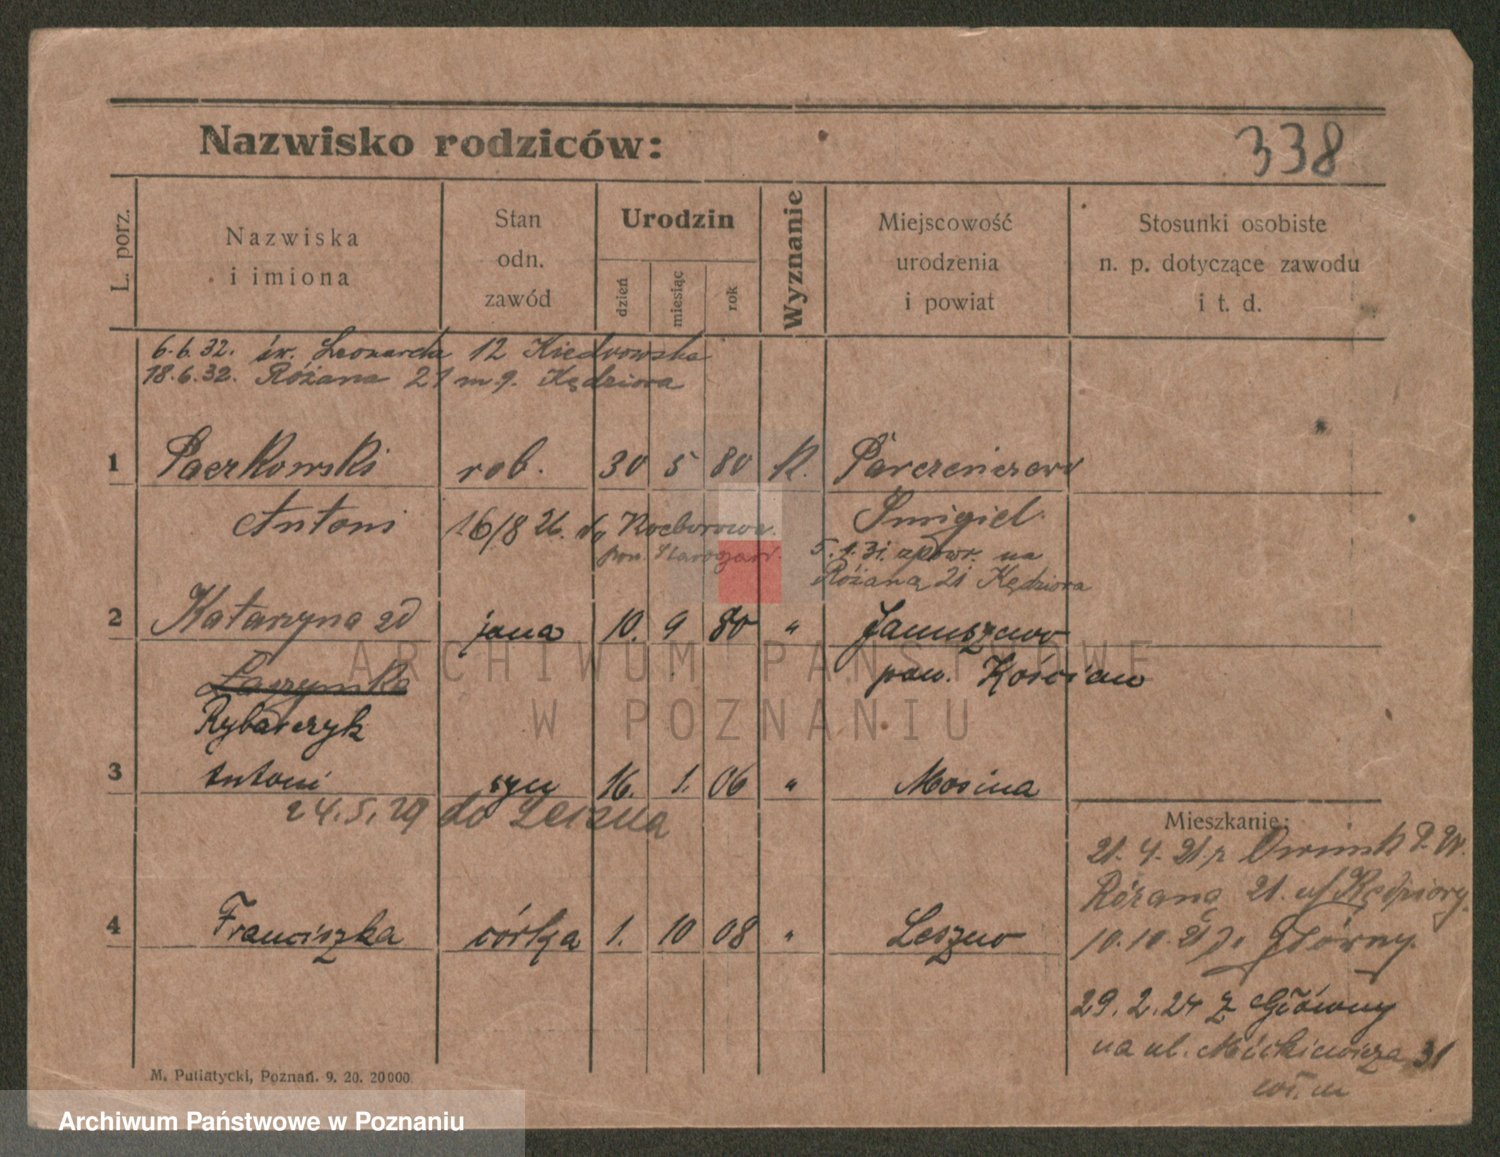 Nazwisko rodziców:
338
L. porz.
Nazwiska
i imiona
Stan
odn.
zawód
Urodzin
dzień
miesiąc
rok
Wyznanie
Miejscowość
urodzenia
i powiat
Stosunki osobiste
n. p. dotyczące zawodu
i t. d.
6.6.32. św. Leonarda 12 Kiedrowska
18.6.32. Różana 21 m 9. Kędziora
1 Paczkowski rob. 30 5 80 K.
Antoni 16/8 26. do Kocborowa. Śmigiel
5.1.31. zpowr. na
Różaną 21 Kędziora
2 Katarzyna zd jana 10. 9 80 " Januszewo
pow. Kościan
Rybarczyk
3 Antoni syn 16. 1. 06 " Mosina
24.5.29 do Leszna
Mieszkanie:
21.4.21 z Owinsk P. W.
Różana 21. u/ Kędziory.
4 Franciszka córka 1. 10 08 " Leszno
10.10.21 Główny.
29.2.24 z Główny
na ul. Mickiewicza 31
M. Putiatycki, Poznań. 9. 20. 20000.
ARCHIWUM PAŃSTWOWE
W POZNANIU
Archiwum Państwowe w Poznaniu